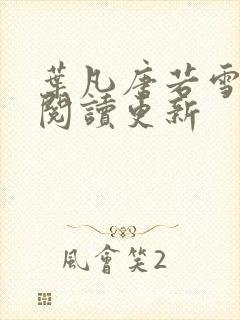 葉凡唐若雪
閱讀更新
風會笑2